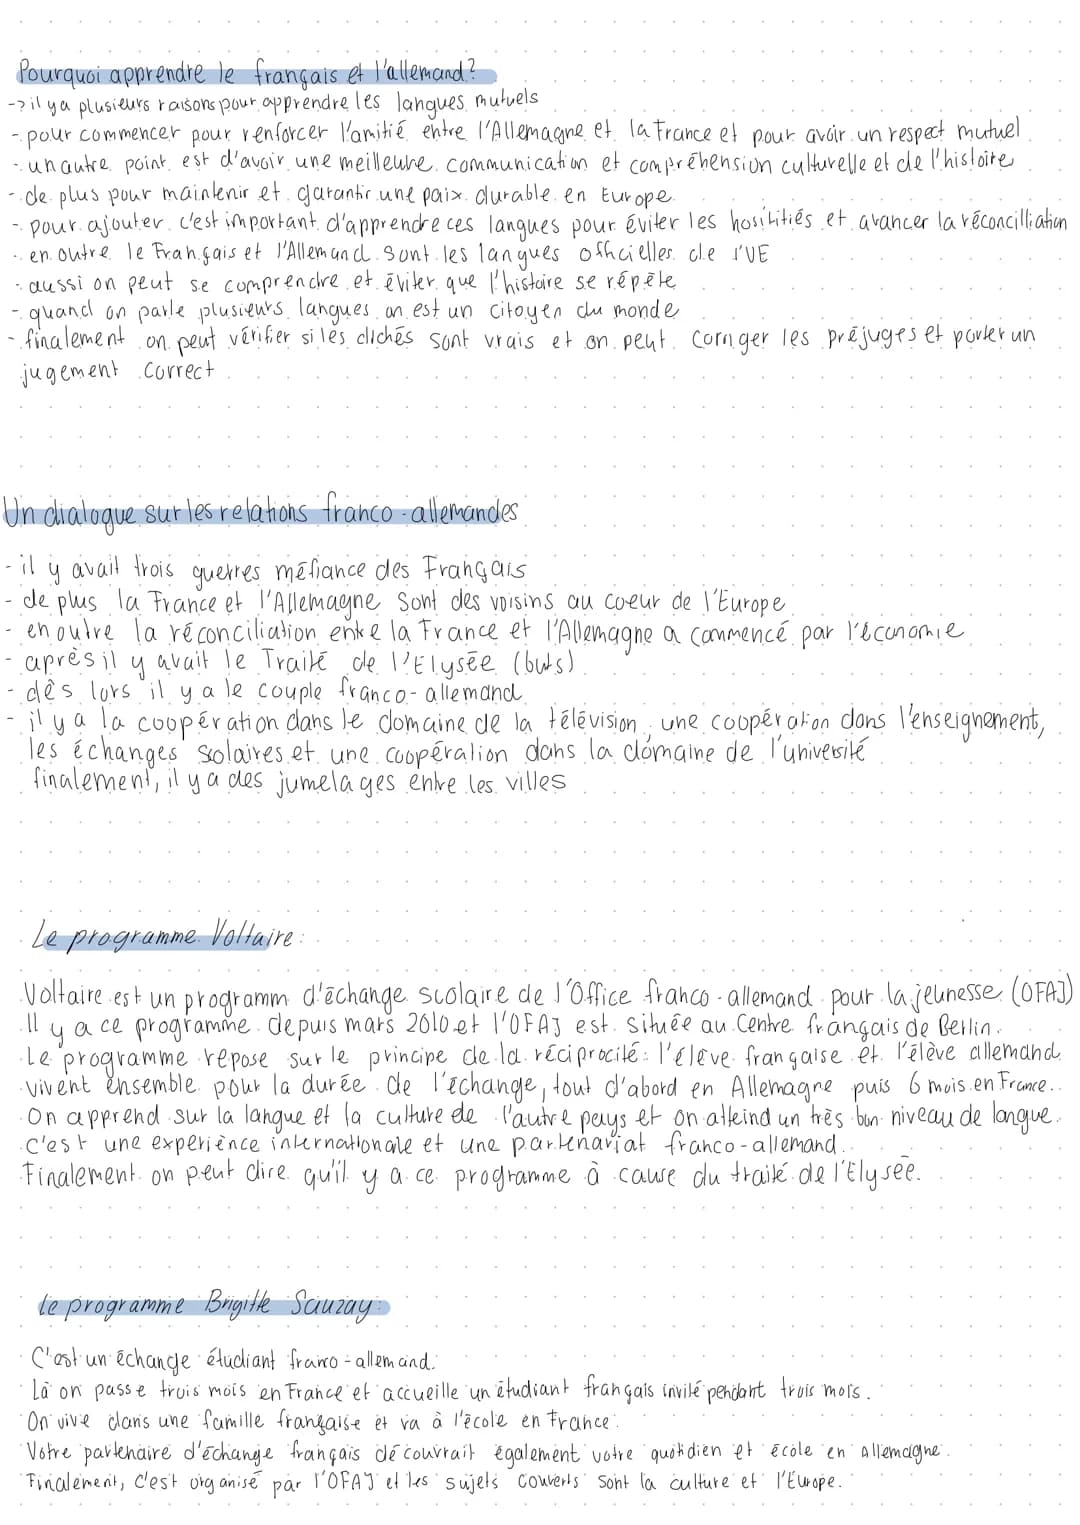 Pourquoi apprendre le français et l'allemand?
-> il y a plusieurs raisons pour apprendre les langues mutuels
- pour commencer pour renforcer l'amitié entre l'Allemagne et la France et pour avoir un respect mutuel
- un autre point est d'avoir une meilleure communication et compréhension culturelle et de l'histoire
- de plus pour maintenir et garantir une paix durable en Europe
- pour ajouter c'est important d'apprendre ces langues pour éviter les hosilitiés et avancer la réconcilliation
- en outre le Français et l'Allemand sont les langues officielles de l'UE
- aussi on peut se comprendre et éviter que l'histoire se répète
- quand on parle plusieurs langues on est un citoyen du monde
- finalement on peut vérifier si les clichés sont vrais et on peut corriger les préjuges et porter un
jugement correct
Un dialogue sur les relations franco-allemandes
- il y avait trois guerres méfiance des Français
- de plus la France et l'Allemagne sont des voisins au coeur de l'Europe
- en outre la réconciliation entre la France et l'Allemagne a commencé par l'économie
- après il y avait le Traité de l'Elysée (buts)
- dès lors il y a le couple franco-allemand
- il y a la coopération dans le domaine de la télévision, une coopération dans l'enseignement,
les échanges solaires et une coopération dans la domaine de l'université
finalement, il y a des jumelages entre les villes
Le programme Voltaire:
Voltaire est un programm d'échange scolaire de l'Office franco-allemand pour la jeunesse (OFAJ)
Il y a ce programme depuis mars 2010 et l'OFAJ est située au Centre français de Berlin.
Le programme repose sur le principe de la réciprocité: l'élève française et l'élève allemand
vivent ensemble pour la durée de l'échange, tout d'abord en Allemagne puis 6 mois en France.
On apprend sur la langue et la culture de l'autre pays et on atteind un très bon niveau de langue.
C'est une expérience internationale et une partenariat franco-allemand.
Finalement on peut dire qu'il y a ce programme à cause du traité de l'Elysée.
Le programme Brigitte Sauzay:
C'est un échange étudiant franco-allemand.
Là on passe trois mois en France et accueille un étudiant français invité pendant trois mois.
On vive dans une famille française et va à l'école en France.
Votre partenaire d'échange français découvrait également votre quotidien et école en Allemagne.
Finalement, c'est organisé par l'OFAJ et les sujets couverts sont la culture et l'Europe.